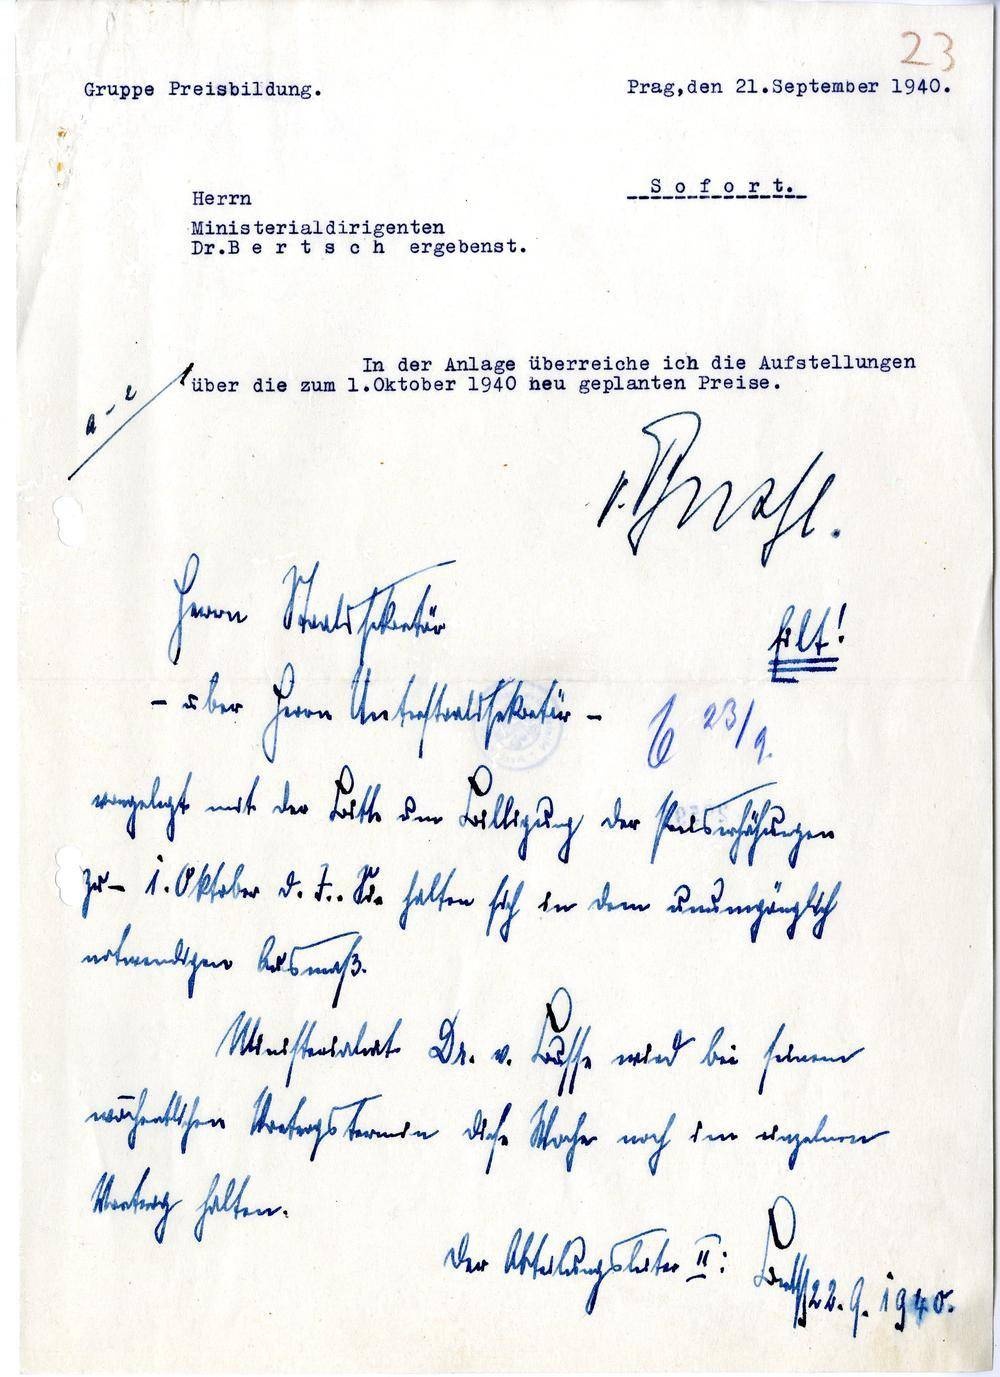 23
Gruppe Preisbildung.
Prag,den 21.September 1940.
Sofort.
Herrn
Ministerialdirigenten
Dr.Bertsch ergebenst.
In der Anlage überreiche ich die Aufstellungen
über die zum 1.Oktober 1940 neu geplanten Preise.
a-e
Herrn Staatssekretär
Eilt!
- über Herrn Unterstaatssekretär -
23/9.
vorgelegt mit der Bitte um Billigung der Preiserhöhungen
zum 1. Oktober d. J.. Sie halten sich in dem unumgänglich
notwendigen Ausmaß.
Ministerialrat Dr. v. Busse wird bei seinem
wöchentlichen Vortragstermin diese Woche noch im einzelnen
Vortrag halten.
Der Abteilungsleiter II:
Bertsch 22.9.1940.